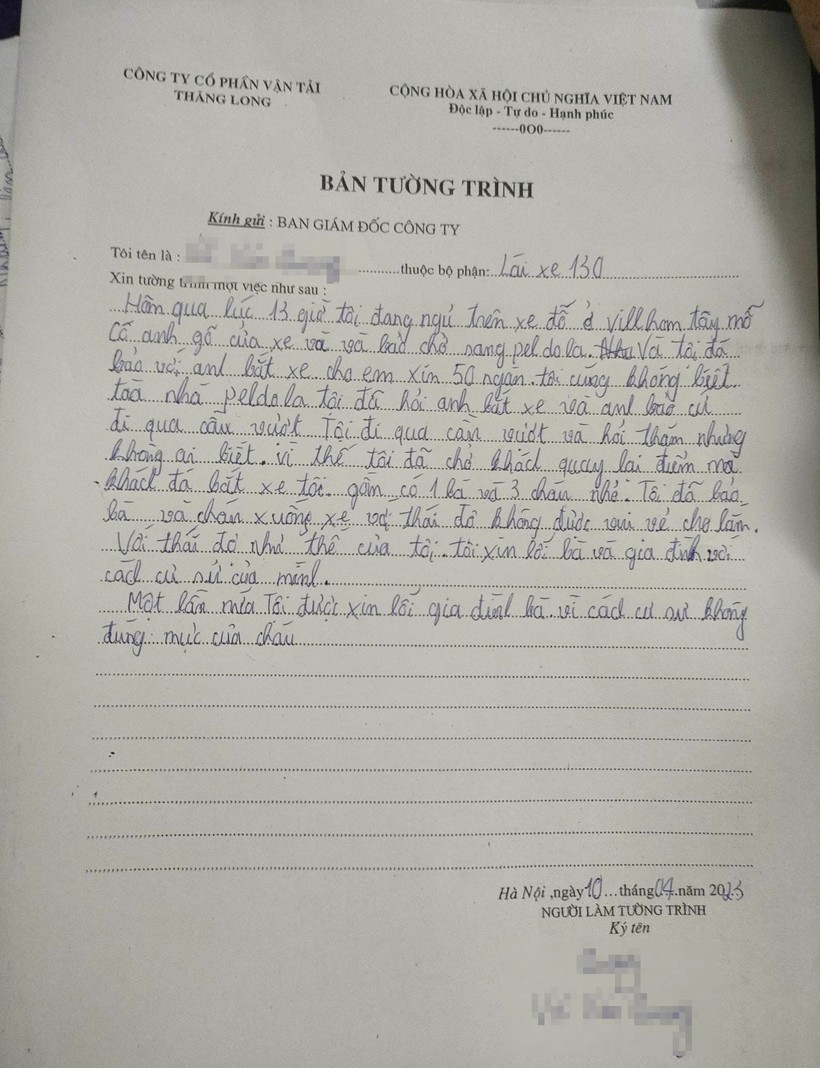 CÔNG TY CỔ PHẦN VẬN TẢI
THĂNG LONG
CỘNG HÒA XÃ HỘI CHỦ NGHĨA VIỆT NAM
Độc lập - Tự do - Hạnh phúc
------0O0------
BẢN TƯỜNG TRÌNH
Kính gửi : BAN GIÁM ĐỐC CÔNG TY
Tôi tên là : ..........thuộc bộ phận: Lái xe 130
Xin tường trình một việc như sau :
Hôm qua lúc 13 giờ tôi đang ngủ trên xe đỗ ở villhom tây mỗ
Có anh gõ cửa xe và và bảo chở sang peldola. Và tôi đã
bảo với anh bắt xe cho em xin 50 ngàn. tôi cũng không biết
toà nhà peldola tôi đã hỏi anh bắt xe và anh bảo cứ
đi qua cầu vượt. Tôi đi qua cần vượt và hỏi thăm nhưng
không ai biết. vì thế tôi đã chở khách quay lại điểm mà
khách đã bắt xe tôi. gồm có 1 bà và 3 cháu nhỏ. Tôi đã bảo
bà và cháu xuống xe với thái độ không được vui vẻ cho lắm.
Với thái độ như thế của tôi. tôi xin lỗi bà và gia đình với
cách cư sử của mình.
Một lần nữa Tôi được xin lỗi gia đình bà vì cách cư sư không
đúng mực của cháu
Hà Nội ,ngày 10 ...tháng 04.năm 2023
NGƯỜI LÀM TƯỜNG TRÌNH
Ký tên